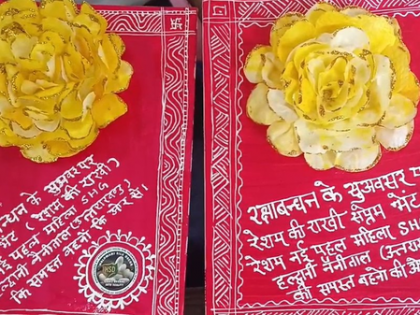 रक्षाबन्धन के सुअवसर
रेशम की राखी सप्रेम भेंट
रेशम नई पहल महिला SH
हल्द्वानी नैनीताल (उत्तरा
की समस्त बहनों की
बन्धन के शुभावसर पर
(रेशम की राखी)
नई पहल महिला SHG
हल्द्वानी नैनीताल (उत्तराखण्ड)
की समस्त बहनों की ओर से।
RSD